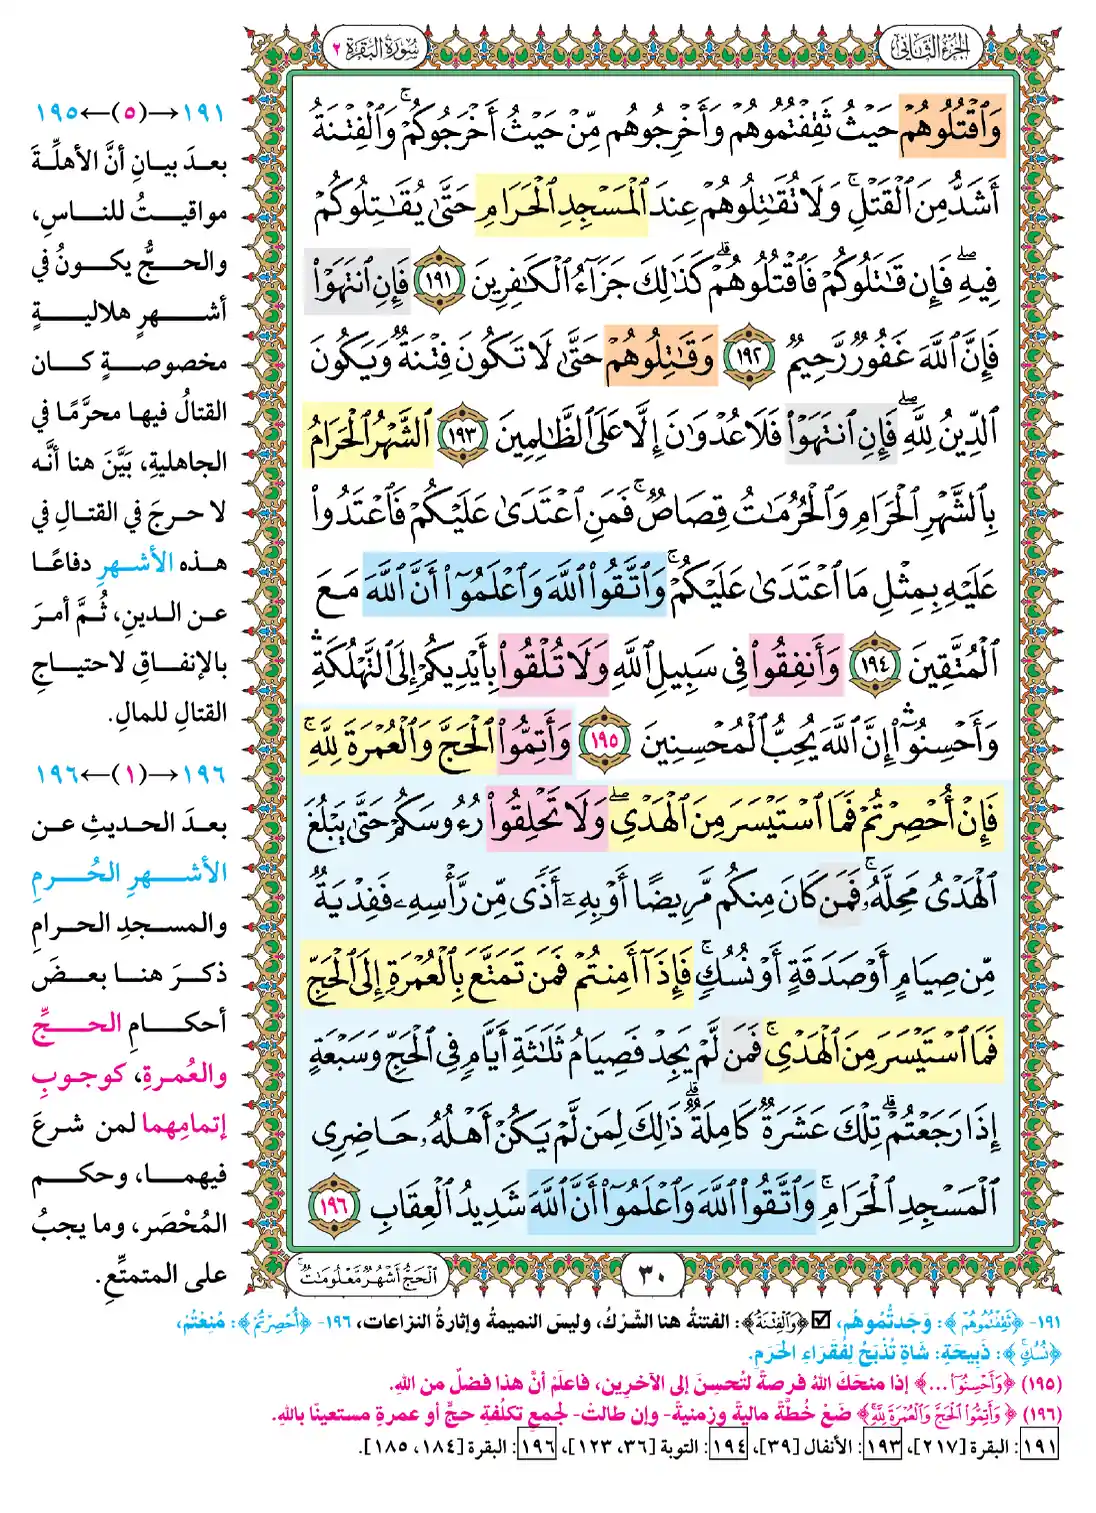 الجزء الثاني
سورة البقرة ٢
وَٱقۡتُلُوهُمۡ حَيۡثُ ثَقِفۡتُمُوهُمۡ وَأَخۡرِجُوهُم مِّنۡ حَيۡثُ أَخۡرَجُوكُمۡۚ وَٱلۡفِتۡنَةُ
أَشَدُّ مِنَ ٱلۡقَتۡلِۚ وَلَا تُقَٰتِلُوهُمۡ عِندَ ٱلۡمَسۡجِدِ ٱلۡحَرَامِ حَتَّىٰ يُقَٰتِلُوكُمۡ
فِيهِۖ فَإِن قَٰتَلُوكُمۡ فَٱقۡتُلُوهُمۡۗ كَذَٰلِكَ جَزَآءُ ٱلۡكَٰفِرِينَ ١٩١ فَإِنِ ٱنتَهَوۡاْ
فَإِنَّ ٱللَّهَ غَفُورٞ رَّحِيمٞ ١٩٢ وَقَٰتِلُوهُمۡ حَتَّىٰ لَا تَكُونَ فِتۡنَةٞ وَيَكُونَ
ٱلدِّينُ لِلَّهِۖ فَإِنِ ٱنتَهَوۡاْ فَلَا عُدۡوَٰنَ إِلَّا عَلَى ٱلظَّٰلِمِينَ ١٩٣ ٱلشَّهۡرُ ٱلۡحَرَامُ
بِٱلشَّهۡرِ ٱلۡحَرَامِ وَٱلۡحُرُمَٰتُ قِصَاصٞۚ فَمَنِ ٱعۡتَدَىٰ عَلَيۡكُمۡ فَٱعۡتَدُواْ
عَلَيۡهِ بِمِثۡلِ مَا ٱعۡتَدَىٰ عَلَيۡكُمۡۚ وَٱتَّقُواْ ٱللَّهَ وَٱعۡلَمُوٓاْ أَنَّ ٱللَّهَ مَعَ
ٱلۡمُتَّقِينَ ١٩٤ وَأَنفِقُواْ فِي سَبِيلِ ٱللَّهِ وَلَا تُلۡقُواْ بِأَيۡدِيكُمۡ إِلَى ٱلتَّهۡلُكَةِۛ
وَأَحۡسِنُوٓاْۛ إِنَّ ٱللَّهَ يُحِبُّ ٱلۡمُحۡسِنِينَ ١٩٥ وَأَتِمُّواْ ٱلۡحَجَّ وَٱلۡعُمۡرَةَ لِلَّهِۚ
فَإِنۡ أُحۡصِرۡتُمۡ فَمَا ٱسۡتَيۡسَرَ مِنَ ٱلۡهَدۡيِۖ وَلَا تَحۡلِقُواْ رُءُوسَكُمۡ حَتَّىٰ يَبۡلُغَ
ٱلۡهَدۡيُ مَحِلَّهُۥۚ فَمَن كَانَ مِنكُم مَّرِيضًا أَوۡ بِهِۦٓ أَذٗى مِّن رَّأۡسِهِۦ فَفِدۡيَةٞ
مِّن صِيَامٍ أَوۡ صَدَقَةٍ أَوۡ نُسُكٖۚ فَإِذَآ أَمِنتُمۡ فَمَن تَمَتَّعَ بِٱلۡعُمۡرَةِ إِلَى ٱلۡحَجِّ
فَمَا ٱسۡتَيۡسَرَ مِنَ ٱلۡهَدۡيِۚ فَمَن لَّمۡ يَجِدۡ فَصِيَامُ ثَلَٰثَةِ أَيَّامٖ فِي ٱلۡحَجِّ وَسَبۡعَةٍ
إِذَا رَجَعۡتُمۡۗ تِلۡكَ عَشَرَةٞ كَامِلَةٞۗ ذَٰلِكَ لِمَن لَّمۡ يَكُنۡ أَهۡلُهُۥ حَاضِرِي
ٱلۡمَسۡجِدِ ٱلۡحَرَامِۚ وَٱتَّقُواْ ٱللَّهَ وَٱعۡلَمُوٓاْ أَنَّ ٱللَّهَ شَدِيدُ ٱلۡعِقَابِ ١٩٦
٣٠
ٱلۡحَجُّ أَشۡهُرٞ مَّعۡلُومَٰتٞۚ
١٩١→(٥)←١٩٥
بعدَ بيانِ أنَّ الأهلَّةَ
مواقيتُ للناسِ،
والحجُّ يكونُ في
أشهرٍ هلاليةٍ
مخصوصةٍ كان
القتالُ فيها محرَّمًا في
الجاهليةِ، بَيَّنَ هنا أنَّه
لا حرجَ في القتالِ في
هذه الأشهرِ دفاعًا
عن الدينِ، ثُمَّ أمرَ
بالإنفاقِ لاحتياجِ
القتالِ للمالِ.
١٩٦→(١)←١٩٦
بعدَ الحديثِ عن
الأشهرِ الحُرمِ
والمسجدِ الحرامِ
ذكرَ هنا بعضَ
أحكامِ الحجِّ
والعُمرةِ، كوجوبِ
إتمامِهما لمن شرعَ
فيهما، وحكم
المُحْصَرِ، وما يجبُ
على المتمتِّعِ.
١٩١- ﴿ثَقِفۡتُمُوهُمۡ﴾: وَجَدتُّمُوهُم، ☑ ﴿وَٱلۡفِتۡنَةُ﴾: الفتنةُ هنا الشِّرْكُ، وليسَ النميمةَ وإثارةَ النزاعاتِ، ١٩٦- ﴿أُحۡصِرۡتُمۡ﴾: مُنِعْتُمْ،
﴿نُسُكٖۚ﴾: ذَبِيحَةٍ: شَاةٍ تُذْبَحُ لِفُقَرَاءِ الحَرَمِ.
(١٩٥) ﴿وَأَحۡسِنُوٓاْ ...﴾ إذا منحَكَ اللهُ فرصةً لتُحسِنَ إلى الآخرِين، فاعلم أنَّ هذا فضلٌ من اللهِ.
(١٩٦) ﴿وَأَتِمُّواْ ٱلۡحَجَّ وَٱلۡعُمۡرَةَ لِلَّهِۚ﴾ ضَعْ خُطَّةً ماليةً وزمنيةً- وإن طالتْ- لجمعِ تكلُفةِ حجٍّ أو عمرةٍ مستعينًا باللهِ.
١٩١: البقرة [٢١٧]، ١٩٣: الأنفال [٣٩]، ١٩٤: التوبة [٣٦، ١٢٣]، ١٩٦: البقرة [١٨٤، ١٨٥].